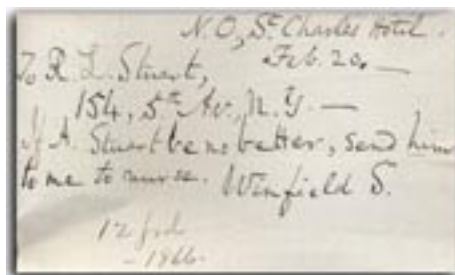 N.O, St Charles Hotel.
Feb. 20. —
To R. L. Stuart,
154, 5th Av, N.Y. —
If A. Stuart be no better, send him
to me to nurse. Winfield S.
12
- 1866-